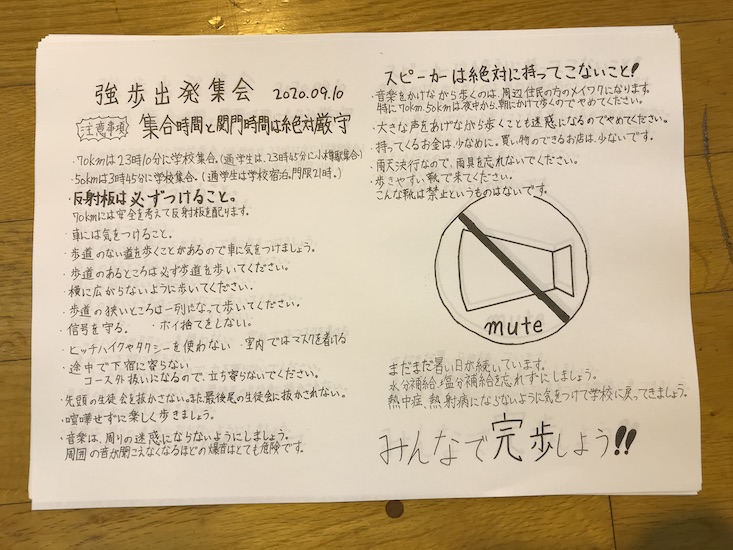 強歩出発集会 2020.09.10
注意事項 集合時間と関門時間は絶対厳守
・70kmは23時10分に学校集合。(通学生は、23時45分に小樽駅集合)
・50kmは3時45分に学校集合。(通学生は学校宿泊。門限21時。)
・反射板は必ずつけること。
70kmには安全を考えて反射板を配ります。
・車には気をつけること。
・歩道のない道を歩くことがあるので車に気をつけましょう。
・歩道のあるところは必ず歩道を歩いてください。
・横に広がらないように歩いてください。
・歩道の狭いところは一列になって歩いてください。
・信号を守る。 ・ポイ捨てをしない。
・ヒッチハイクやタクシーを使わない ・室内ではマスクを着ける
・途中で下宿に寄らない
コース外扱いになるので、立ち寄らないでください。
・先頭の生徒会を抜かさない。また最後尾の生徒会に抜かされない。
・喧嘩せずに楽しく歩きましょう。
・音楽は、周りの迷惑にならないようにしましょう。
周囲の音が聞こえなくなるほどの爆音はとても危険です。
スピーカーは絶対に持ってこないこと!
・音楽をかけながら歩くのは、周辺住民の方のメイワクになります。
特に70km、50kmは夜中から、朝にかけて歩くのでやめてください。
・大きな声をあげながら歩くことも迷惑になるのでやめてください。
・持ってくるお金は、少なめに。買い物のできるお店は、少ないです。
・雨天決行なので、雨具を忘れないでください。
・歩きやすい靴で来てください。
こんな靴は禁止というものはないです。
mute
まだまだ暑い日が続いています。
水分補給、塩分補給を忘れずにしましょう。
熱中症、熱射病にならないように気をつけて学校に戻ってきましょう。
みんなで完歩しよう!!